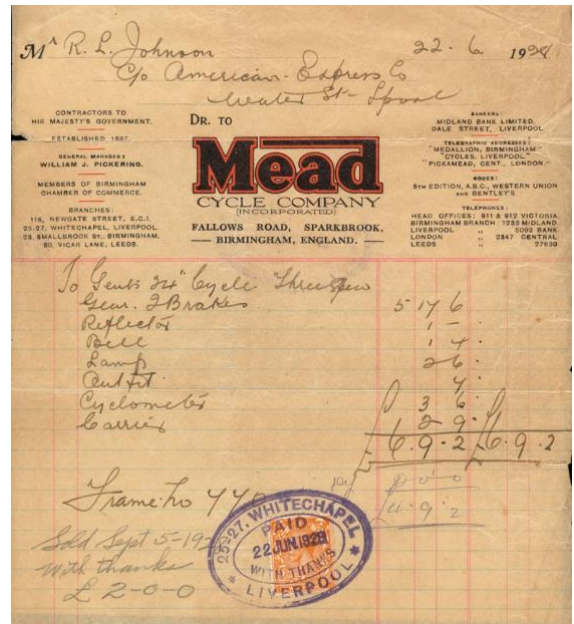 Mr R. L. Johnson 22 - 6 1928
C/o American Express Co
Water St - Lpool
CONTRACTORS TO
HIS MAJESTY'S GOVERNMENT.
ESTABLISHED 1897.
GENERAL MANAGER:
WILLIAM J. PICKERING.
MEMBERS OF BIRMINGHAM
CHAMBER OF COMMERCE.
BRANCHES:
116, NEWGATE STREET, E.C.1.
25-27, WHITECHAPEL, LIVERPOOL.
SMALLBROOK ST., BIRMINGHAM.
80, VICAR LANE, LEEDS.
DR. TO
Mead
CYCLE COMPANY
(INCORPORATED)
FALLOWS ROAD, SPARKBROOK,
BIRMINGHAM, ENGLAND.
BANKERS:
MIDLAND BANK LIMITED.
DALE STREET, LIVERPOOL
TELEGRAPHIC ADDRESSES:
"MEDALLION, BIRMINGHAM"
"CYCLES, LIVERPOOL."
"PICKAMEAD, CENT., LONDON."
CODES:
5TH EDITION, A.B.C., WESTERN UNION
AND BENTLEY'S
TELEPHONES:
HEAD OFFICES: 911 & 912 VICTORIA.
BIRMINGHAM BRANCH: 1233 MIDLAND.
LIVERPOOL " 5092 BANK
LONDON " 2847 CENTRAL
LEEDS " 27630
To Gents 24" Cycle Three Speed
Gear. 2 Brakes 5 17 6
Reflector 1 -
Bell 1 4
Lamp 2 6
Outfit 4
Cyclometer 3 6
Carrier 2 9
£6 . 9 . 2 £6 . 9 . 2
4 . 9 . 2
Frame No
Sold Sept 5-19
With thanks
£ 2-0-0
25-27, WHITECHAPEL
PAID
22 JUN. 1928
WITH THANKS
LIVERPOOL